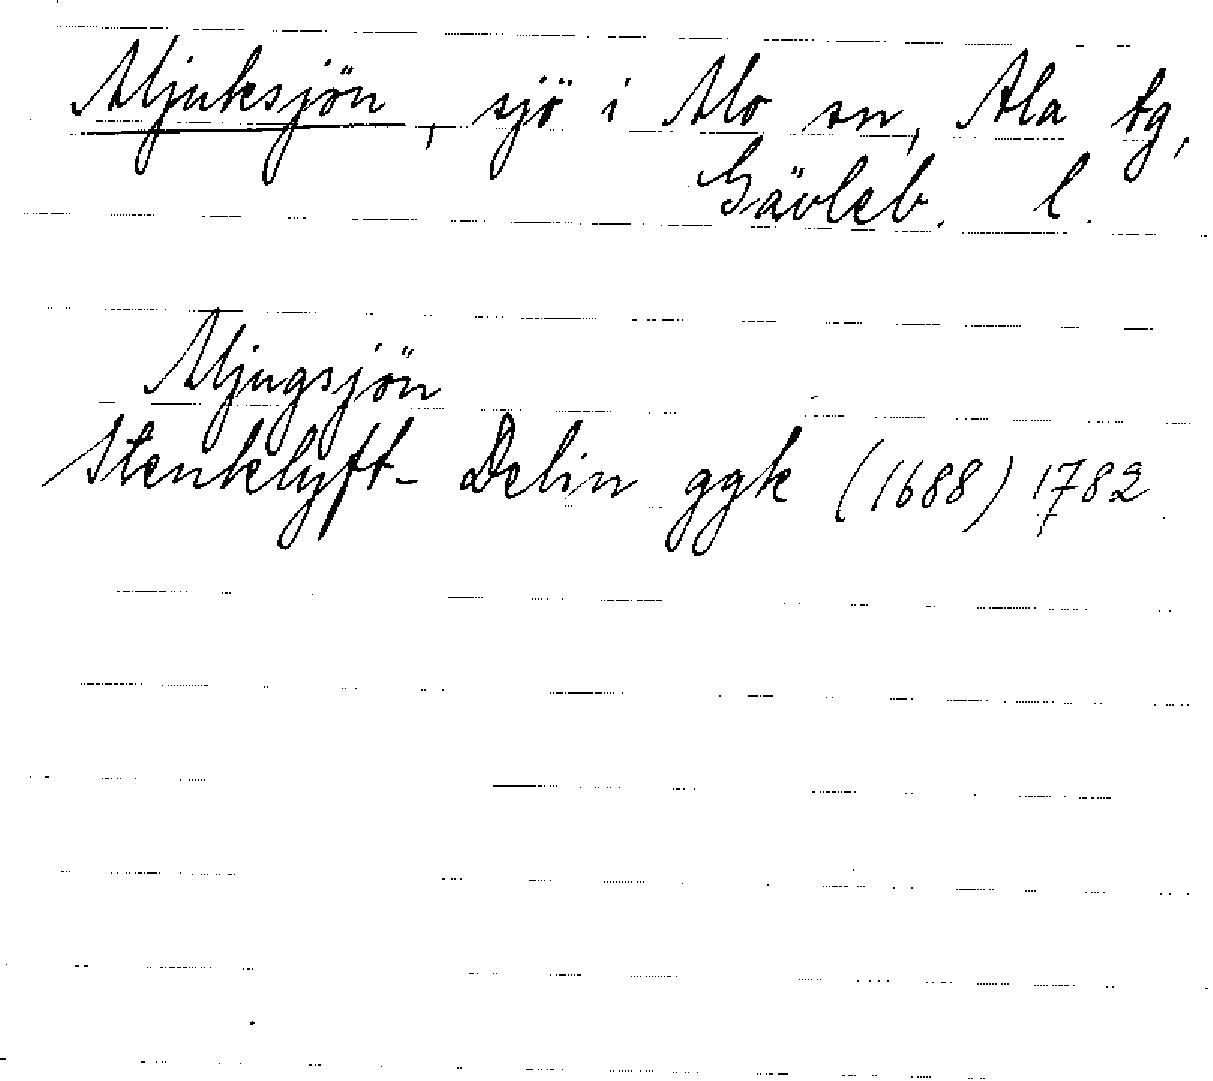 Mjuksjön, sjö i Mo sn, Ala tg,
Gävleb. l.
Mjugsjön
Stenklyft- Delin ggk (1688) 1782